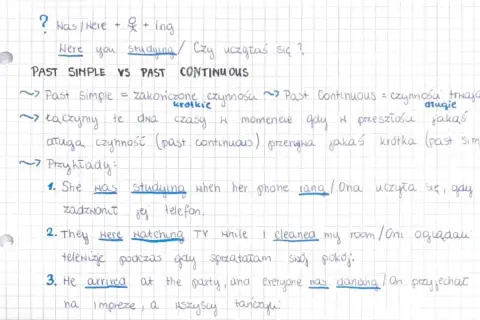 ? Was/Were + + ing
Were you studying / Czy uczyłaś się?
PAST SIMPLE VS PAST CONTINUOUS
~> Past Simple = zakończone czynności ~> Past Continuous = czynności trwają
krótkie długie
~> Łączymy te dwa czasy w momencie gdy w przeszłości jakąś
długą czynność (past continuous) przerywa jakaś krótka (past sim
~> Przykłady:
1. She was studying when her phone rang / Ona uczyła się, gdy
zadzwonił jej telefon.
2. They were watching TV while I cleaned my room / Oni oglądali
telewizję podczas gdy sprzątałam swój pokój.
3. He arrived at the party, and everyone was dancing / On przyjechał
na imprezę, a wszyscy tańczyli.